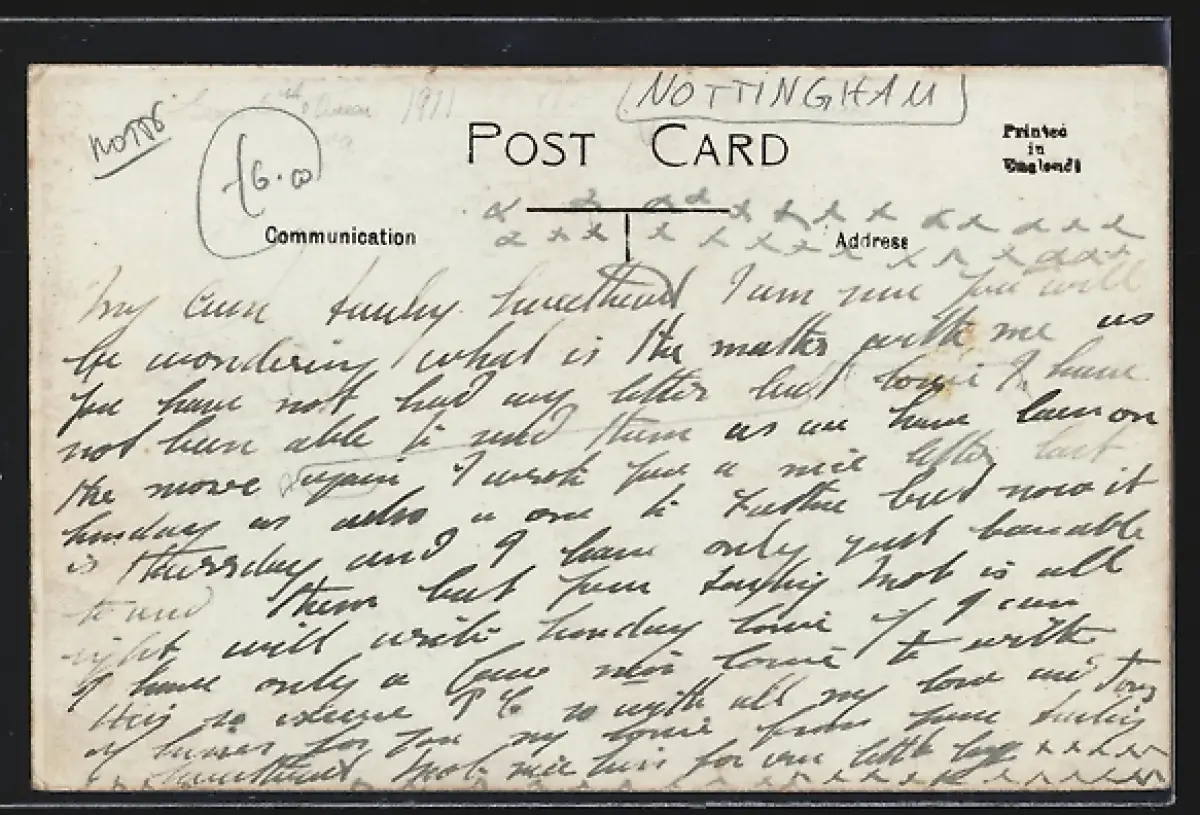 NOTTINGHAM
1911
POST CARD
Printed
in
England
Notts
£6.00
Communication
Address
x x x x x x x x x x x x x x
x x x x x x x x x x x x x x
My own Sweetheart I am sure you will
be wondering what is the matter with me as
you have not had any letter but I have
not been able to send them as we have been on
the move again I wrote you a nice letter last
Sunday as also a one to but now it
is Thursday and I have only just been able
to send them but your is all
right will write Sunday if I can
I have only a few to write
this so excuse P C so with all my love and
of kisses for you my from your
Sweetheart nice kiss for our little x x x x x
x x x x x x x x x x x